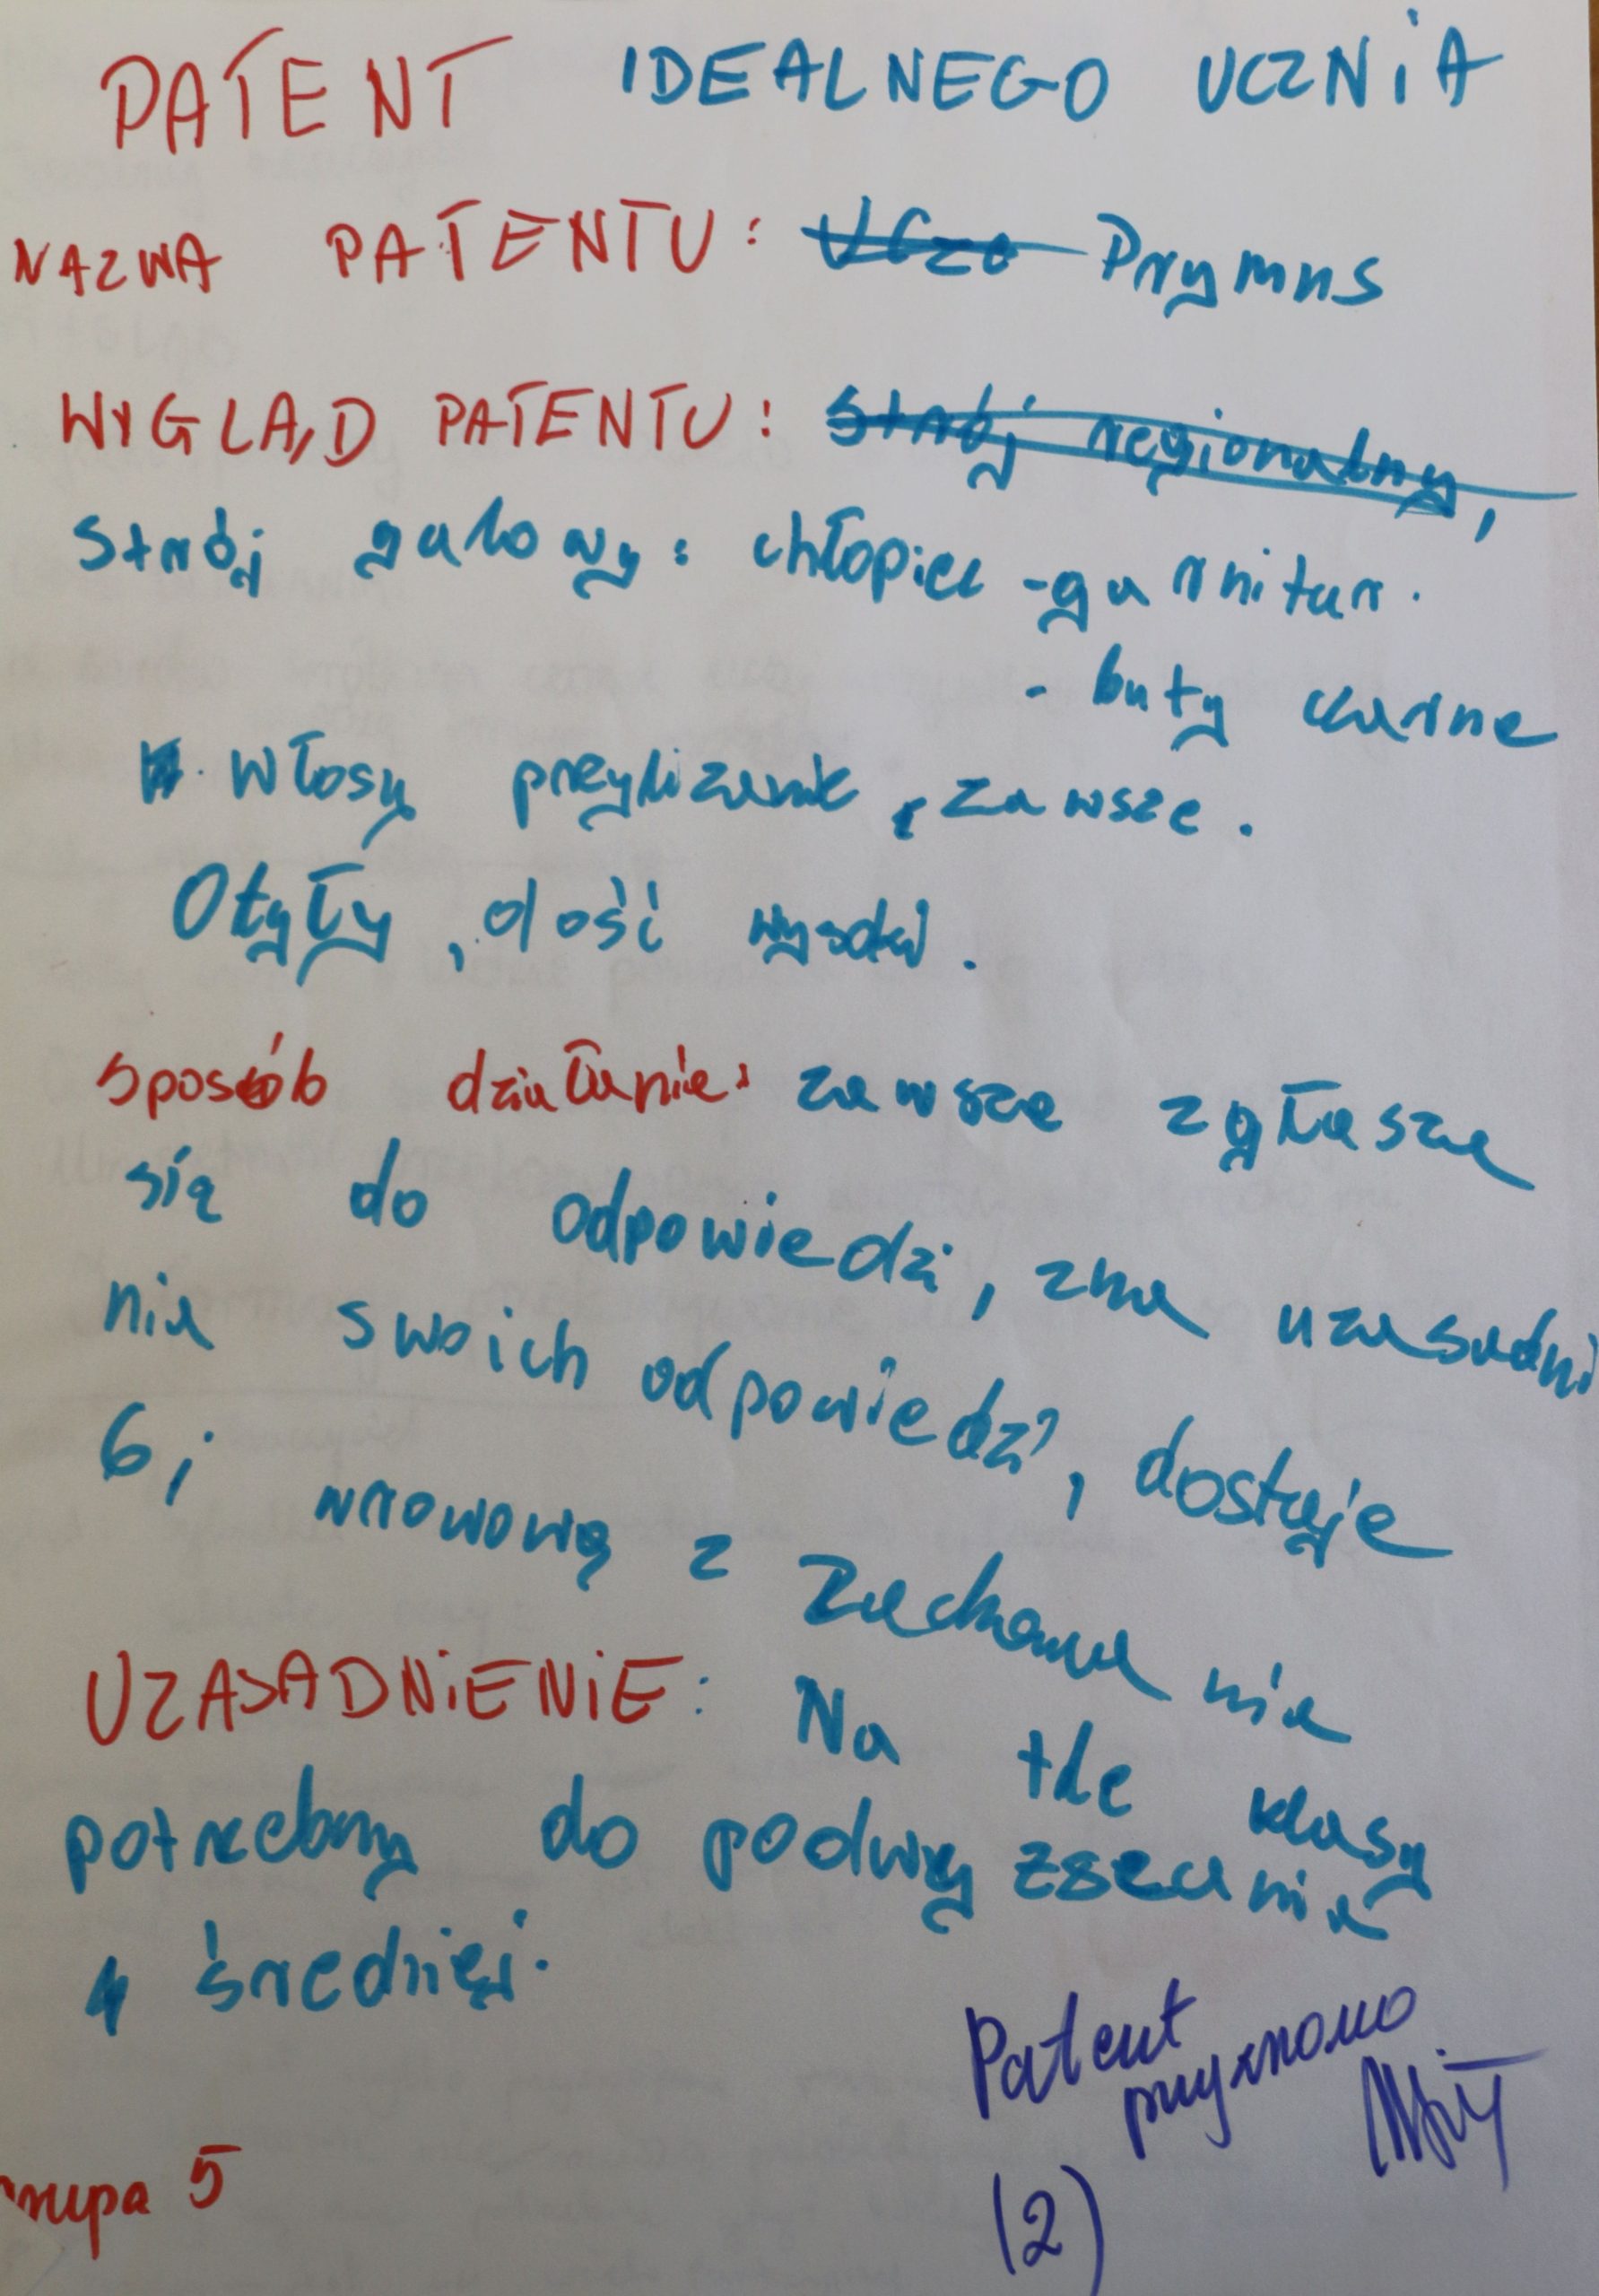 PATENT IDEALNEGO UCZNiA
NAZWA PATENTU: Ucze Prymus
WYGLĄD PATENTU: Strój regionalny,
Strój galowy: chłopiec -garnitur.
- buty czarne
Włosy przylizanie, zawsze.
Otyły, dość wysoki.
sposób działanie: zawsze zgłasza
się do odpowiedzi, zna uzasadni
nia swoich odpowiedzi, dostaje
6, wzorową z zachowania
UZASADNiENiE: Na tle klasy
potrzebny do podwyzszania
średniej.
Patent
przyznano
(2)
grupa 5